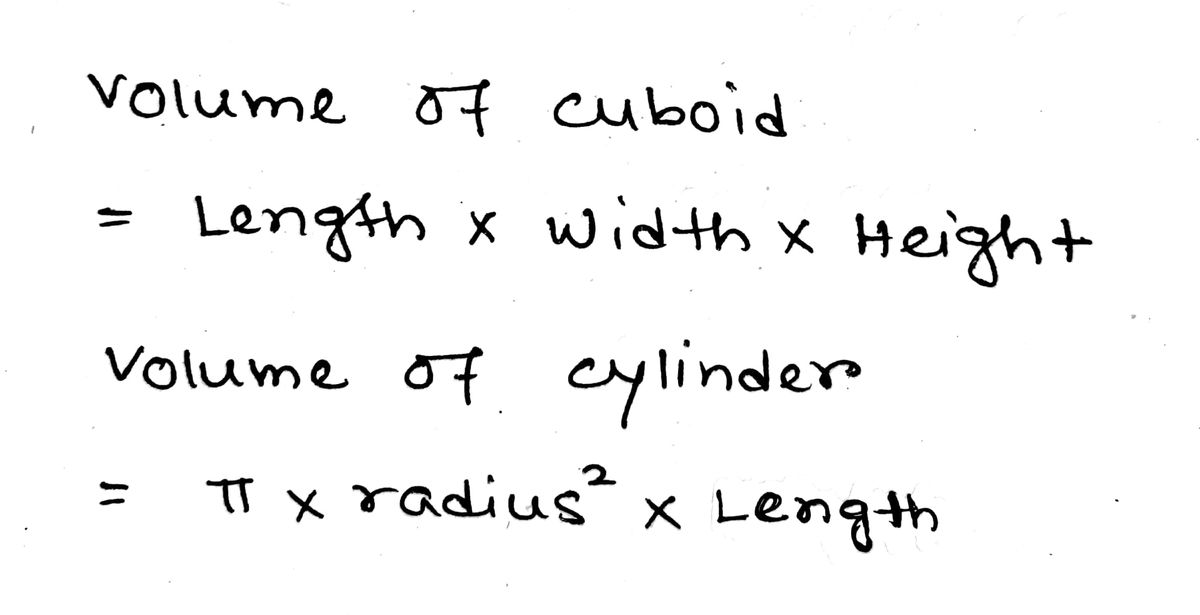 Volume of cuboid
= Length x Width x Height
Volume of cylinder
= π x radius² x Length